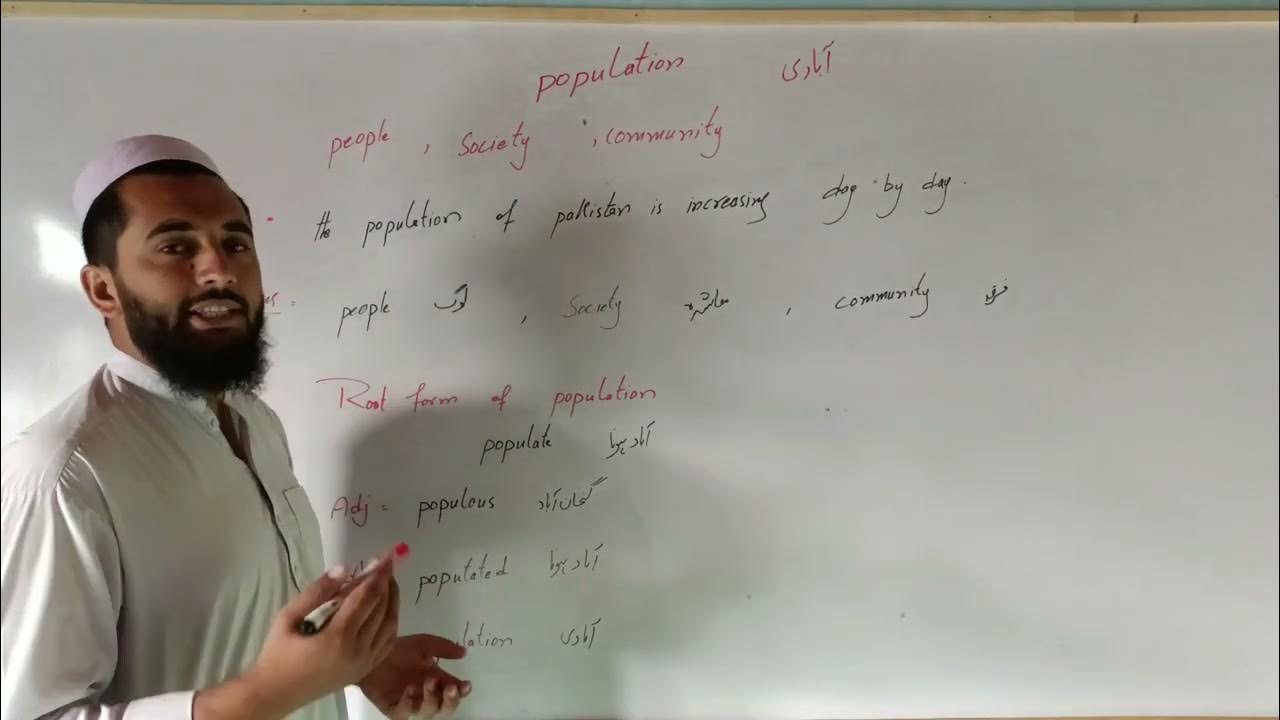 population آبادی
people , Society , community
the population of pakistan is increasing day by day.
= people لوگ , Society معاشرہ , community فرقہ
Root form of population
populate آباد ہونا
Adj = populous گنجان آباد
populated آباد ہونا
آبادی